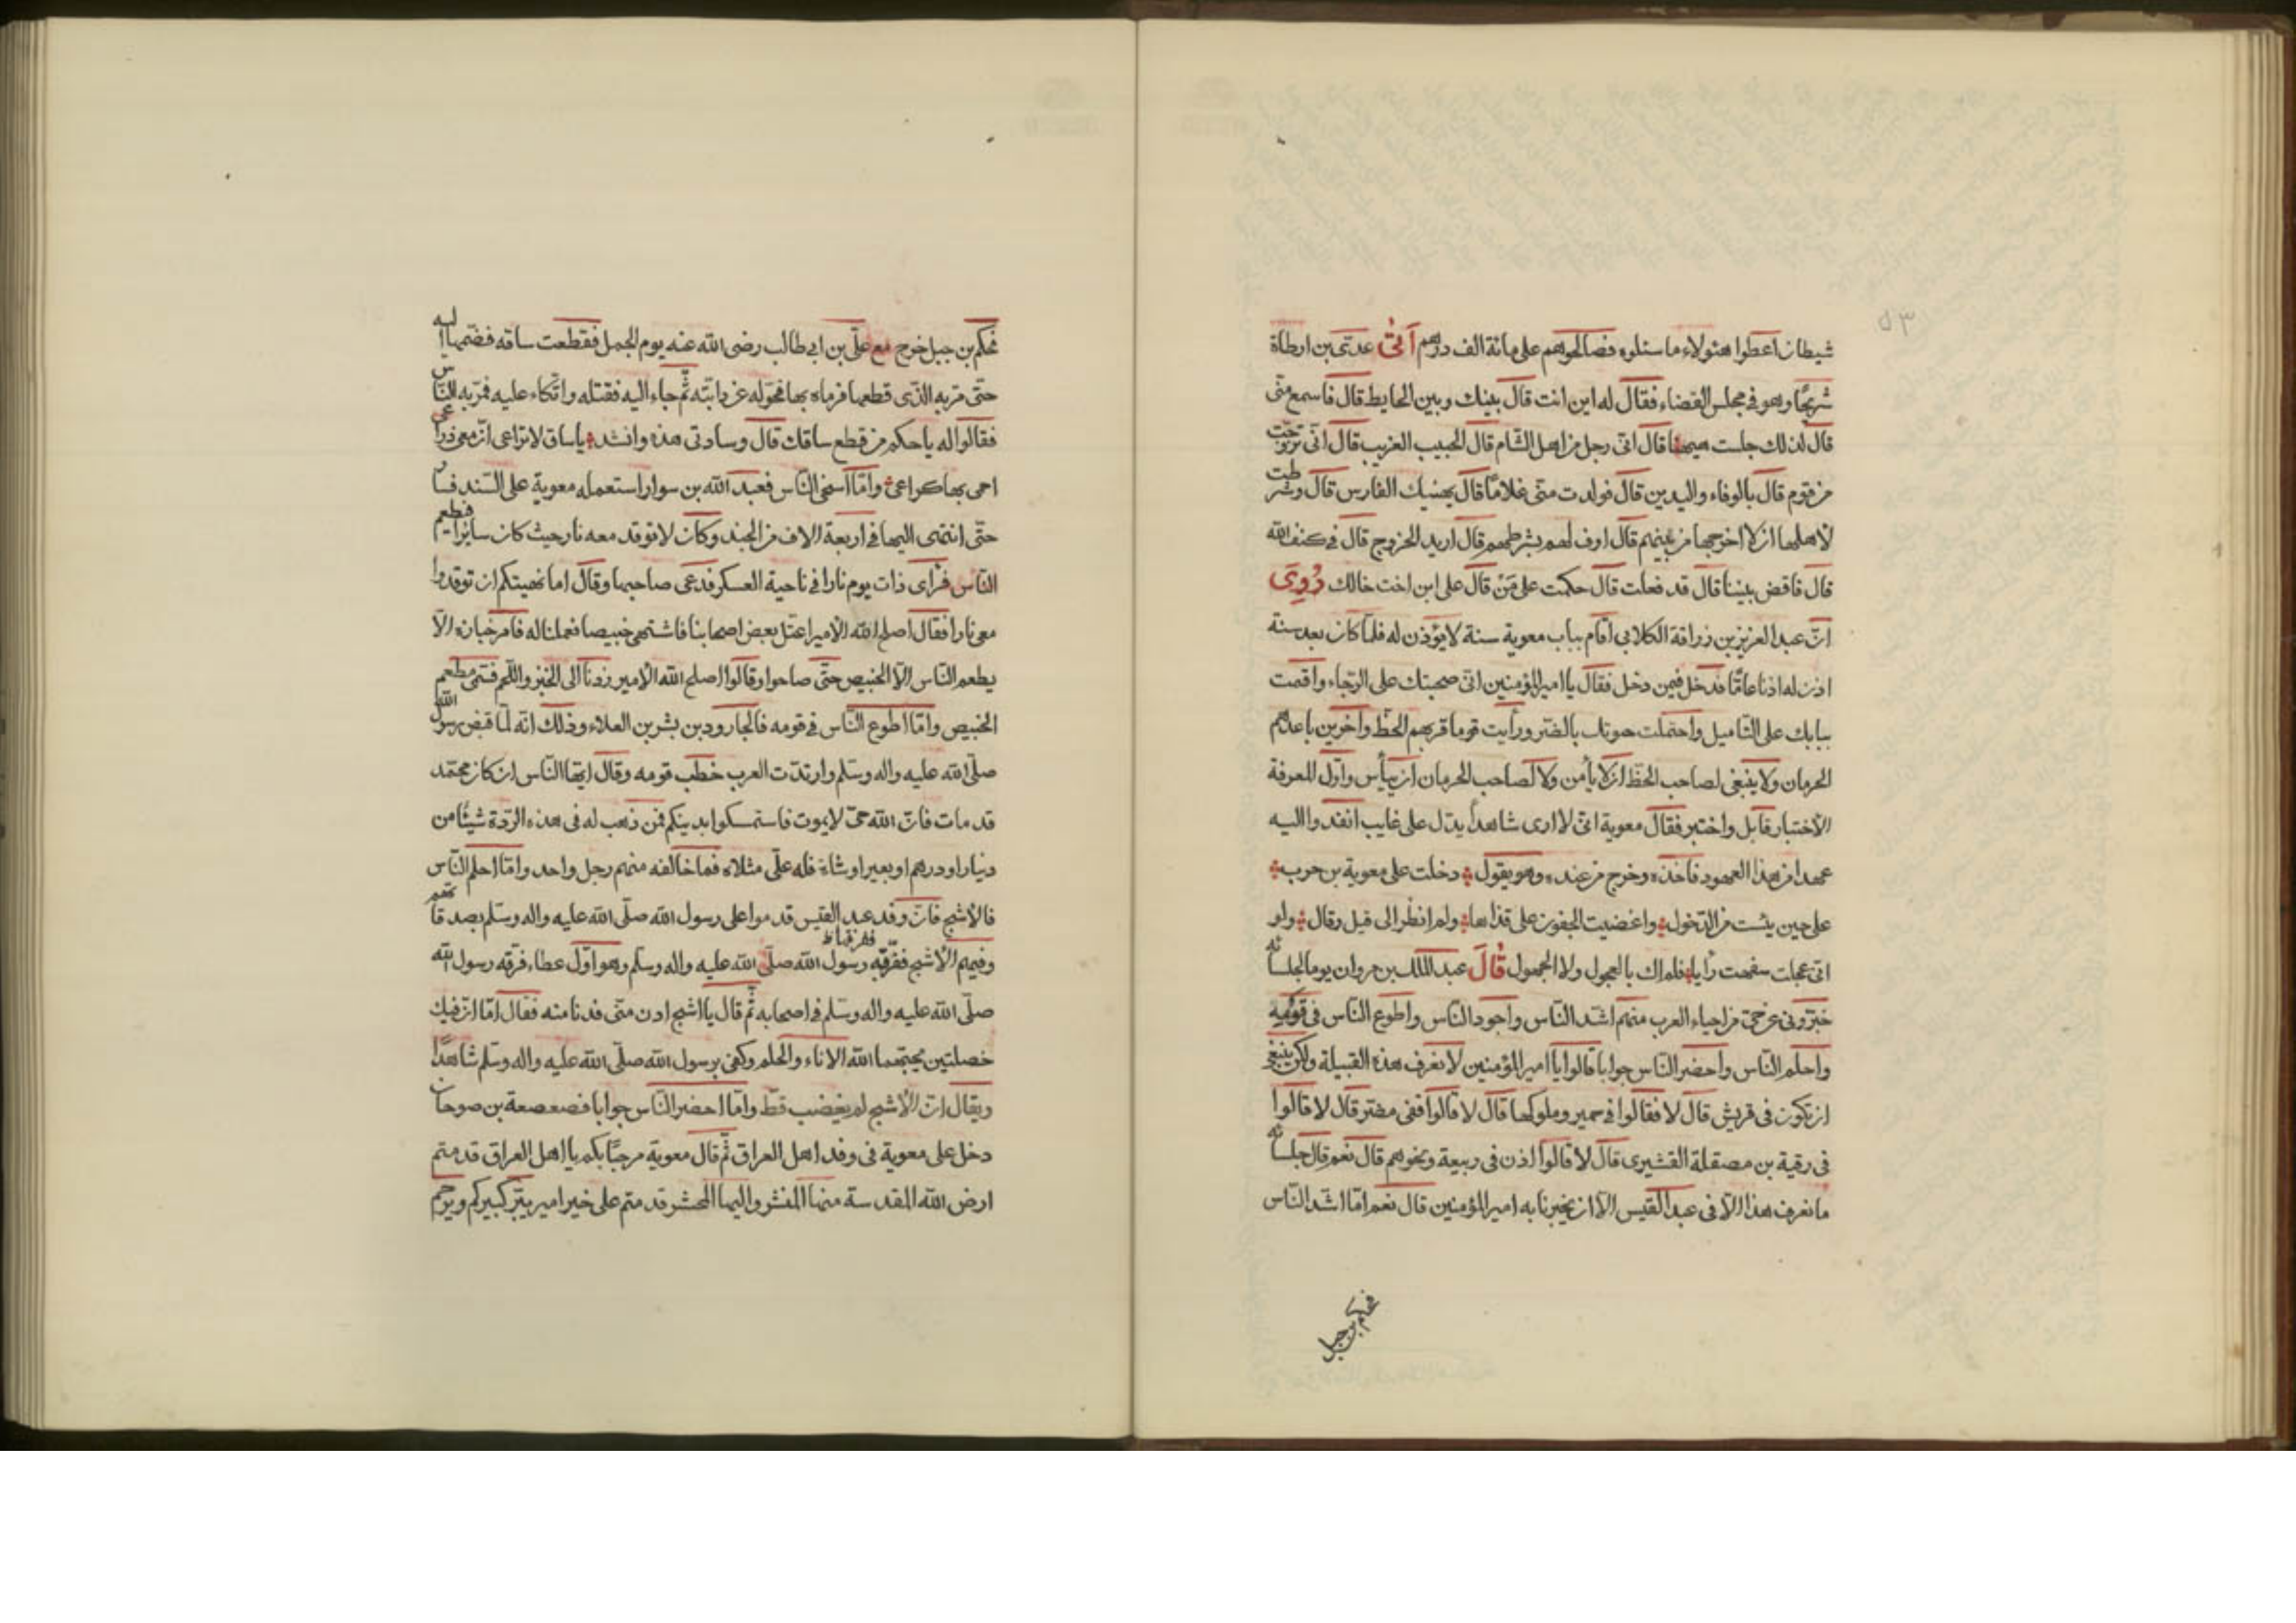 ٥٣
شيطان اعطوا هئولاء ما سئلوه فصالحوهم على مائة الف درهم اتى عدىّ بن ارطاة
شريحًا وهو في مجلس القضاء فقال له اين انت قال بينك وبين الحايط قال فاسمع منّى
قال لذلك جلست هيهنا قال انّى رجل من اهل الشّام قال الحبيب الغريب قال انّى تزوّجت
من قوم قال بالوفاء والبدين قال فولدت منّى غلامًا قال يهنيك الفارس قال وشرطت
لاهلها ان لا اخرجها من بينهم قال اوف لهم بشرطهم قال اريد الخروج قال في كنف الله
قال فاقض بيننا قال قد فعلت قال حكمت على مَنْ قال على ابن اخت خالك رُوِىَ
انّ عبد العزيز بن زرافة الكلابى اقام بباب معوية سنة لا يؤذن له فلمّا كان بعد سنة
اذن له اذنا عامّا فدخل فيمن دخل فقال يا امير المؤمنين انّى صحبتك على الرّجاء واقمت
ببابك على التّاميل واحتملت جوتاب بالضّر ورأيت قوما قربهم الحظّ وآخرين باعدهم
الحرمان ولا ينبغى لصاحب الحظّ ان لا يأمن ولا لصاحب الحرمان ان ييأس واوّل المعرفة
الاختبار فابل واختبر فقال معوية انّى لا ارى شاهداً يدّل على غايب انفذوا اليه
عهدا من هذا العهود فاخذه وخرج من عنده وهو يقول دخلت على معوية بن حرب
على حين يئست من الدّخول واغضيت الجفون على قذاها ولم انظر الى قيل وقال ولو
انّى عجلت سفهت رأيا فلم اك بالعجول ولا الجهول قال عبد الملك بن مروان يوما لجلسائه
خبّرونى عن حىّ من احياء العرب منهم اشدّ النّاس واجود النّاس واطوع النّاس فى قومه
واحلم النّاس واحضر النّاس جوابا قالوا يا امير المؤمنين لا نعرف هذه القبيلة ولكن ينبغى
ان تكون فى قريش قال لا فقالوا فى حمير وملوكها قال لا قالوا ففى مضر قال لا قالوا
فى رقية بن مصقلة القشيرى قال لا قالوا اذن فى ربيعة ونحوهم قال نعم قال جلسائه
ما نعرف هذا الّا فى عبد القيس الّا ان يخبرنا به امير المؤمنين قال نعم امّا اشدّ النّاس
فحكم بن جبل
فحكم بن جبل خرج مع علىّ بن ابى طالب رضى الله عنه يوم الجمل فقطعت ساقه فضمّها اليه
حتّى مرّ به الذّى قطعها فرماه بها فحوّله عن دابّته ثمّ جاء اليه فقتله واتّكاء عليه فمرّ به النّاس
فقالوا له يا حكم من قطع ساقك قال وسادتى هذه وانشد يا ساق لا تراعى انّ معى ذراعى
احمى بها كراعى وامّا اسخى النّاس فعبد الله بن سوار استعمله معوية على السّند فسار
حتّى انتهى اليها فى اربعة الاف من الجند وكان لا توقد معه نار حيث كان سائرا فيطعم
النّاس فرأى ذات يوم نارا فى ناحية العسكر فدعى صاحبها وقال اما نهيتكم ان توقدوا
معى نارا فقال اصلح الله الامير اعتلّ بعض اصحابنا فاشتهى خبيصا فعملنا له فامر خبازه الّا
يطعم النّاس الّا الخبيص حتّى صاحوا وقالوا اصلح الله الامير زدنا الى الخبز واللّحم فسّمى مطعم
الخبيص وامّا اطوع النّاس فى قومه فالجارود بن بشر بن العلاء وذلك انّه لمّا قبض رسول الله
صلّى الله عليه واله وسلّم وارتدّت العرب خطب قومه وقال ايّها النّاس ان كان محمّد
قد مات فانّ الله حىّ لا يموت فاستمسكوا بدينكم فمن ذهب له فى هذه الرّدة شيئًا من
دينار او درهم او بعير او شاة فله علىّ مثلاه فما خالفه منهم رجل واحد وامّا احلم النّاس
فالاشج فانّ وفد عبد القيس قدموا على رسول الله صلّى الله عليه واله وسلّم بصدقاتهم
وفيهم الاشج ففرّقه رسول الله صلّى الله عليه واله وسلّم وهو اوّل عطاء فرّقه رسول الله
ففرقها ظ
صلّى الله عليه واله وسلّم فى اصحابه ثمّ قال يا اشج ادن منّى فدنا منه فقال امّا انّ فيك
خصلتين يحبّهما الله الاناء والحلم وكفى برسول الله صلّى الله عليه واله وسلّم شاهدًا
ويقال انّ الاشج لم يغضب قطّ وامّا احضر النّاس جوابا فصعصعة بن صوحان
دخل على معوية فى وفد اهل العراق ثمّ قال معوية مرحبًا بكم يا اهل العراق قدمتم
ارض الله المقدسة منها المنشر واليها المحشر قدمتم على خير امير يبرّ كبيركم ويرحم